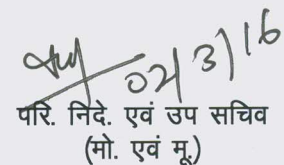 02/3/16
परि. निदे. एवं उप सचिव
(मो. एवं मू.)